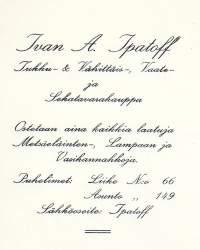 Ivan A. Ipatoff
Tukku- & Vähittäis-, Vaate-
ja
Sekatavarakauppa
Ostetaan aina kaikkia laatuja
Metsäeläinten-, Lampaan ja
Vasikannahkoja.
Puhelimet: Liike N:o 66
Asunto „ 149
Sähköosoite: Ipatoff